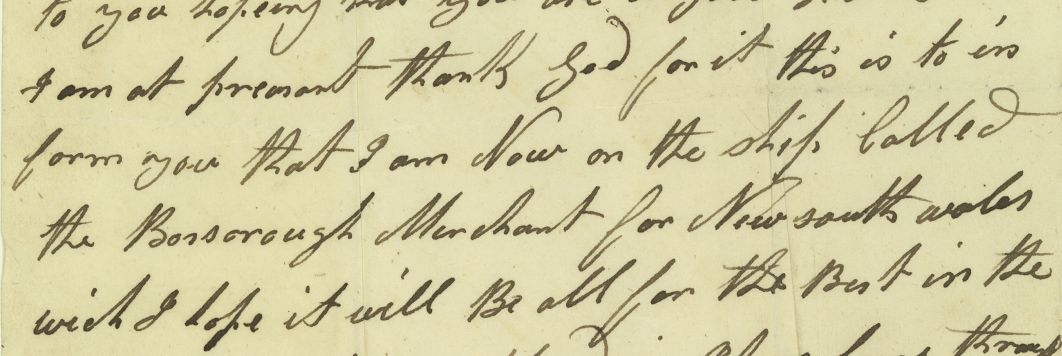 to you hopeing that you are
I am at preasant thank God for it this is to in
form you that I am Now on the ship Called
the Bossorough Merchant for New south wales
wich I hope it will Be all for the Best in the
throug